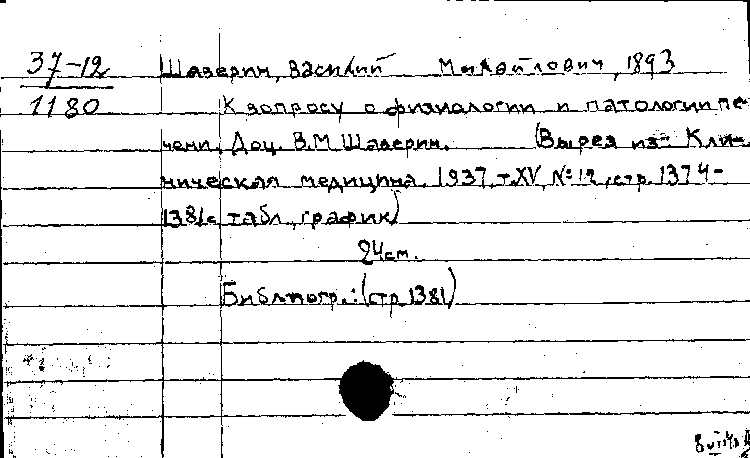 37-12
1180
Шаверин, Василий Михайлович, 1893
К вопросу о физиологии и патологии пе-
чени. Доц. В.М. Шаверин. (Вырез. из: Кли-
ническая медицина, 1937, т. XV, № 12, стр. 1374-
1381 с табл., график)
24 см.
Библиогр.: (стр. 1381)